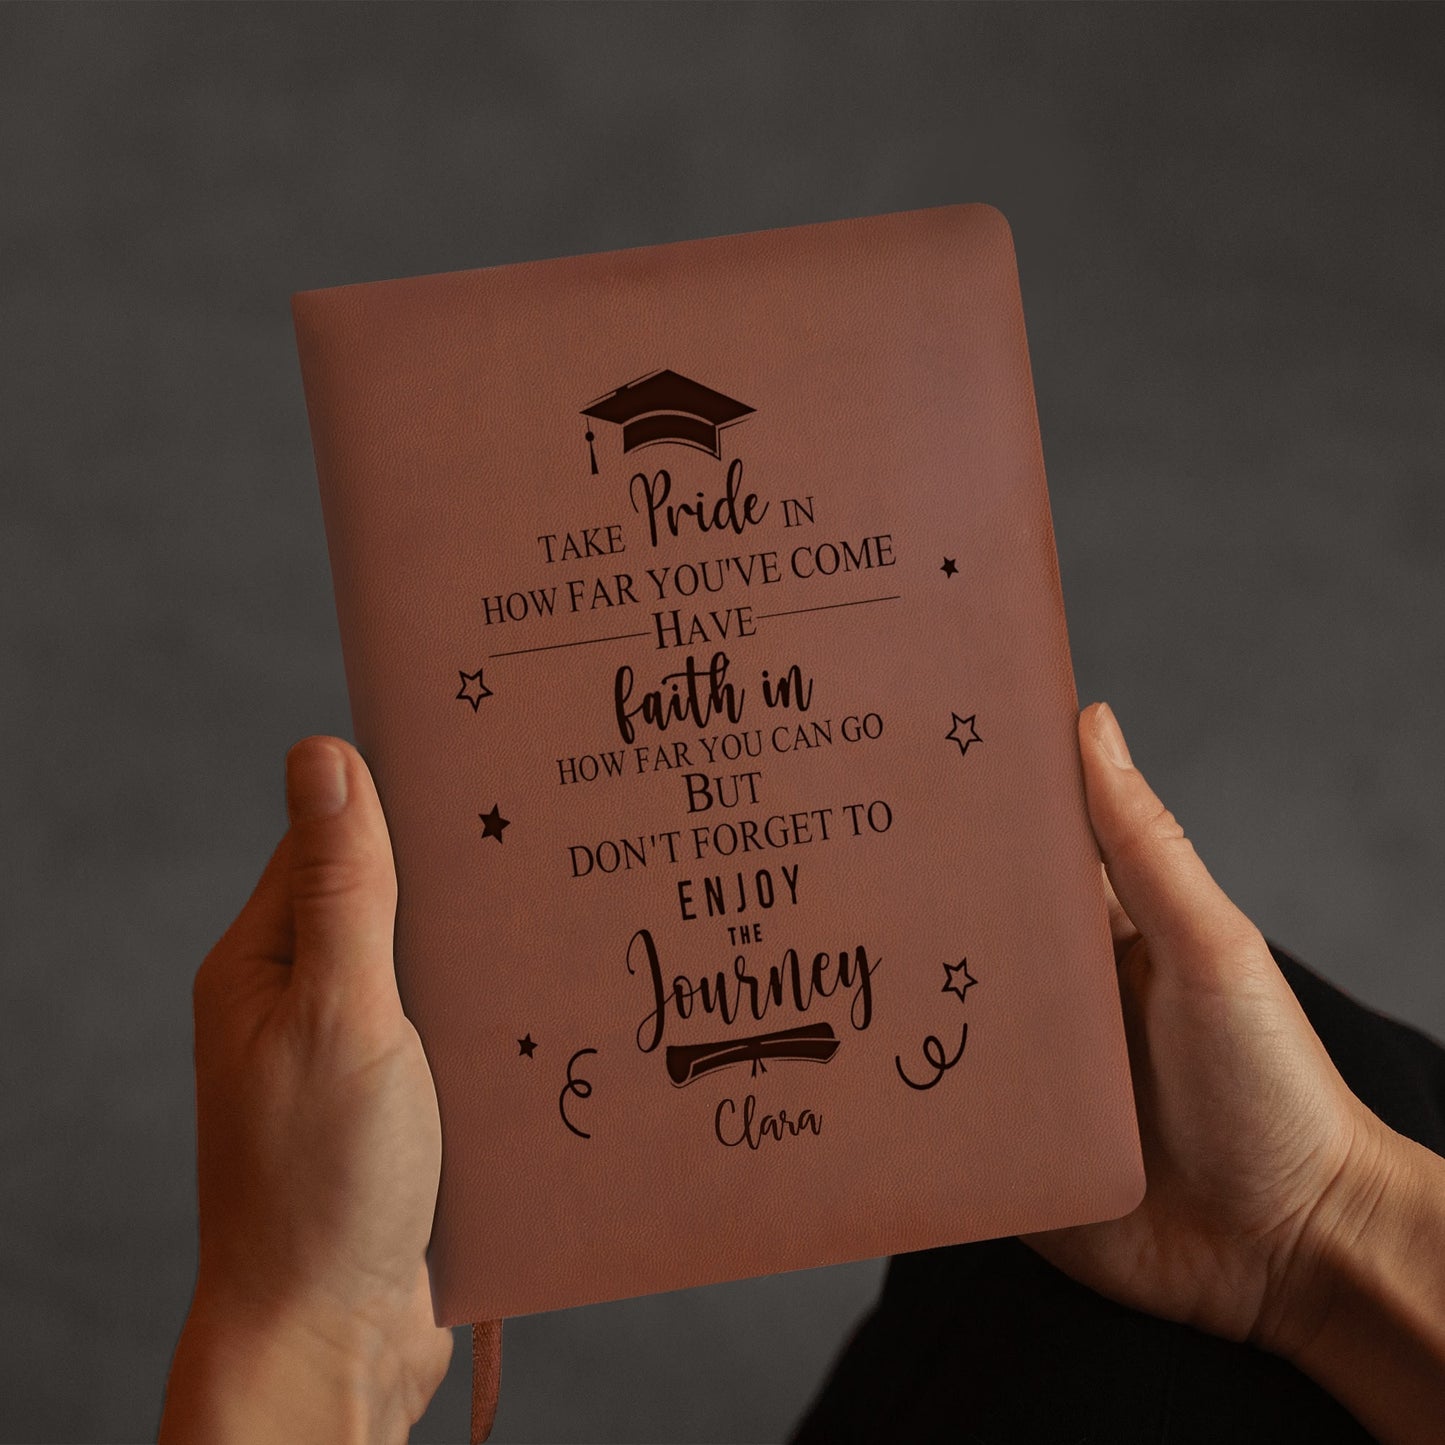 TAKE Pride IN
HOW FAR YOU'VE COME
HAVE
faith in
HOW FAR YOU CAN GO
BUT
DON'T FORGET TO
ENJOY
THE
Journey
Clara